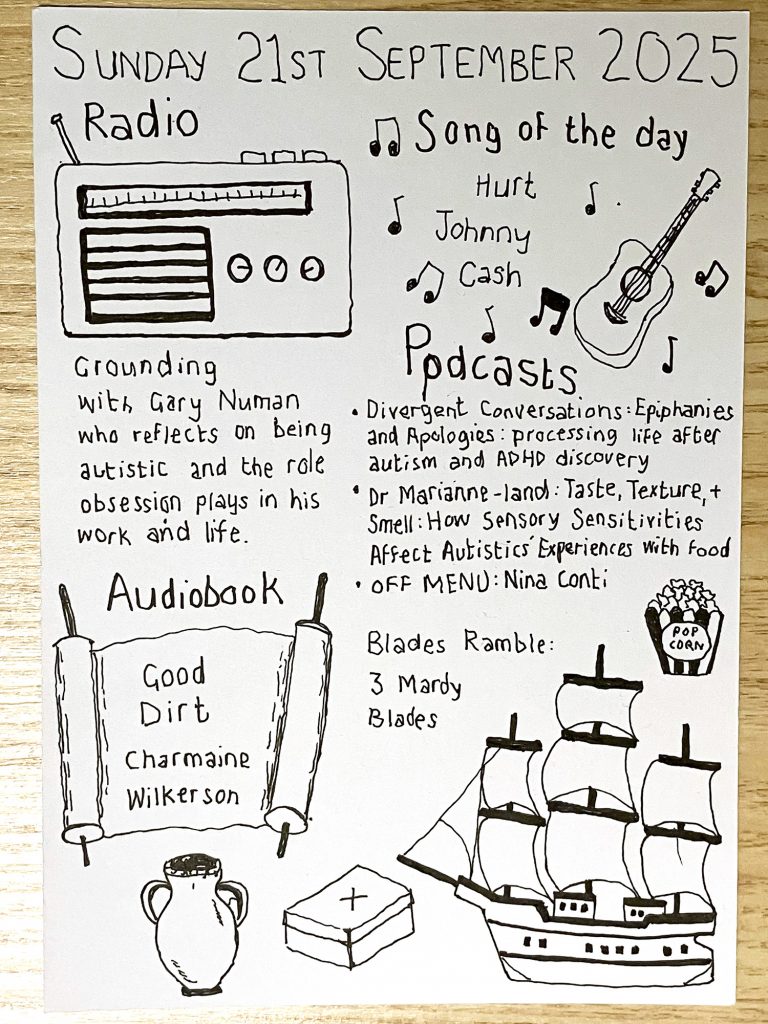 SUNDAY 21ST SEPTEMBER 2025
Radio
Grounding
with Gary Numan
who reflects on being
autistic and the role
obsession plays in his
work and life.
Song of the day
Hurt
Johnny
Cash
Podcasts
• Divergent Conversations: Epiphanies
and Apologies: processing life after
autism and ADHD discovery
• Dr Marianne-land: Taste, Texture, +
Smell: How Sensory Sensitivities
Affect Autistics' Experiences with food
• OFF MENU: Nina Conti
POP
CORN
Blades Ramble:
3 Mardy
Blades
Audiobook
Good
Dirt
Charmaine
Wilkerson